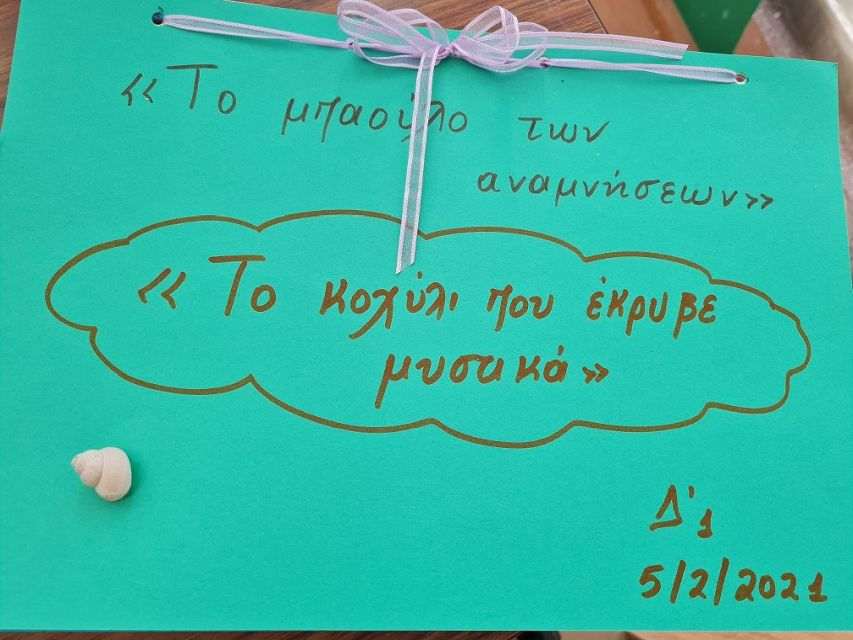 «Το μπαούλο των
αναμνήσεων»
«Το κοχύλι που έκρυβε
μυστικά»
Δ'1
5/2/2021